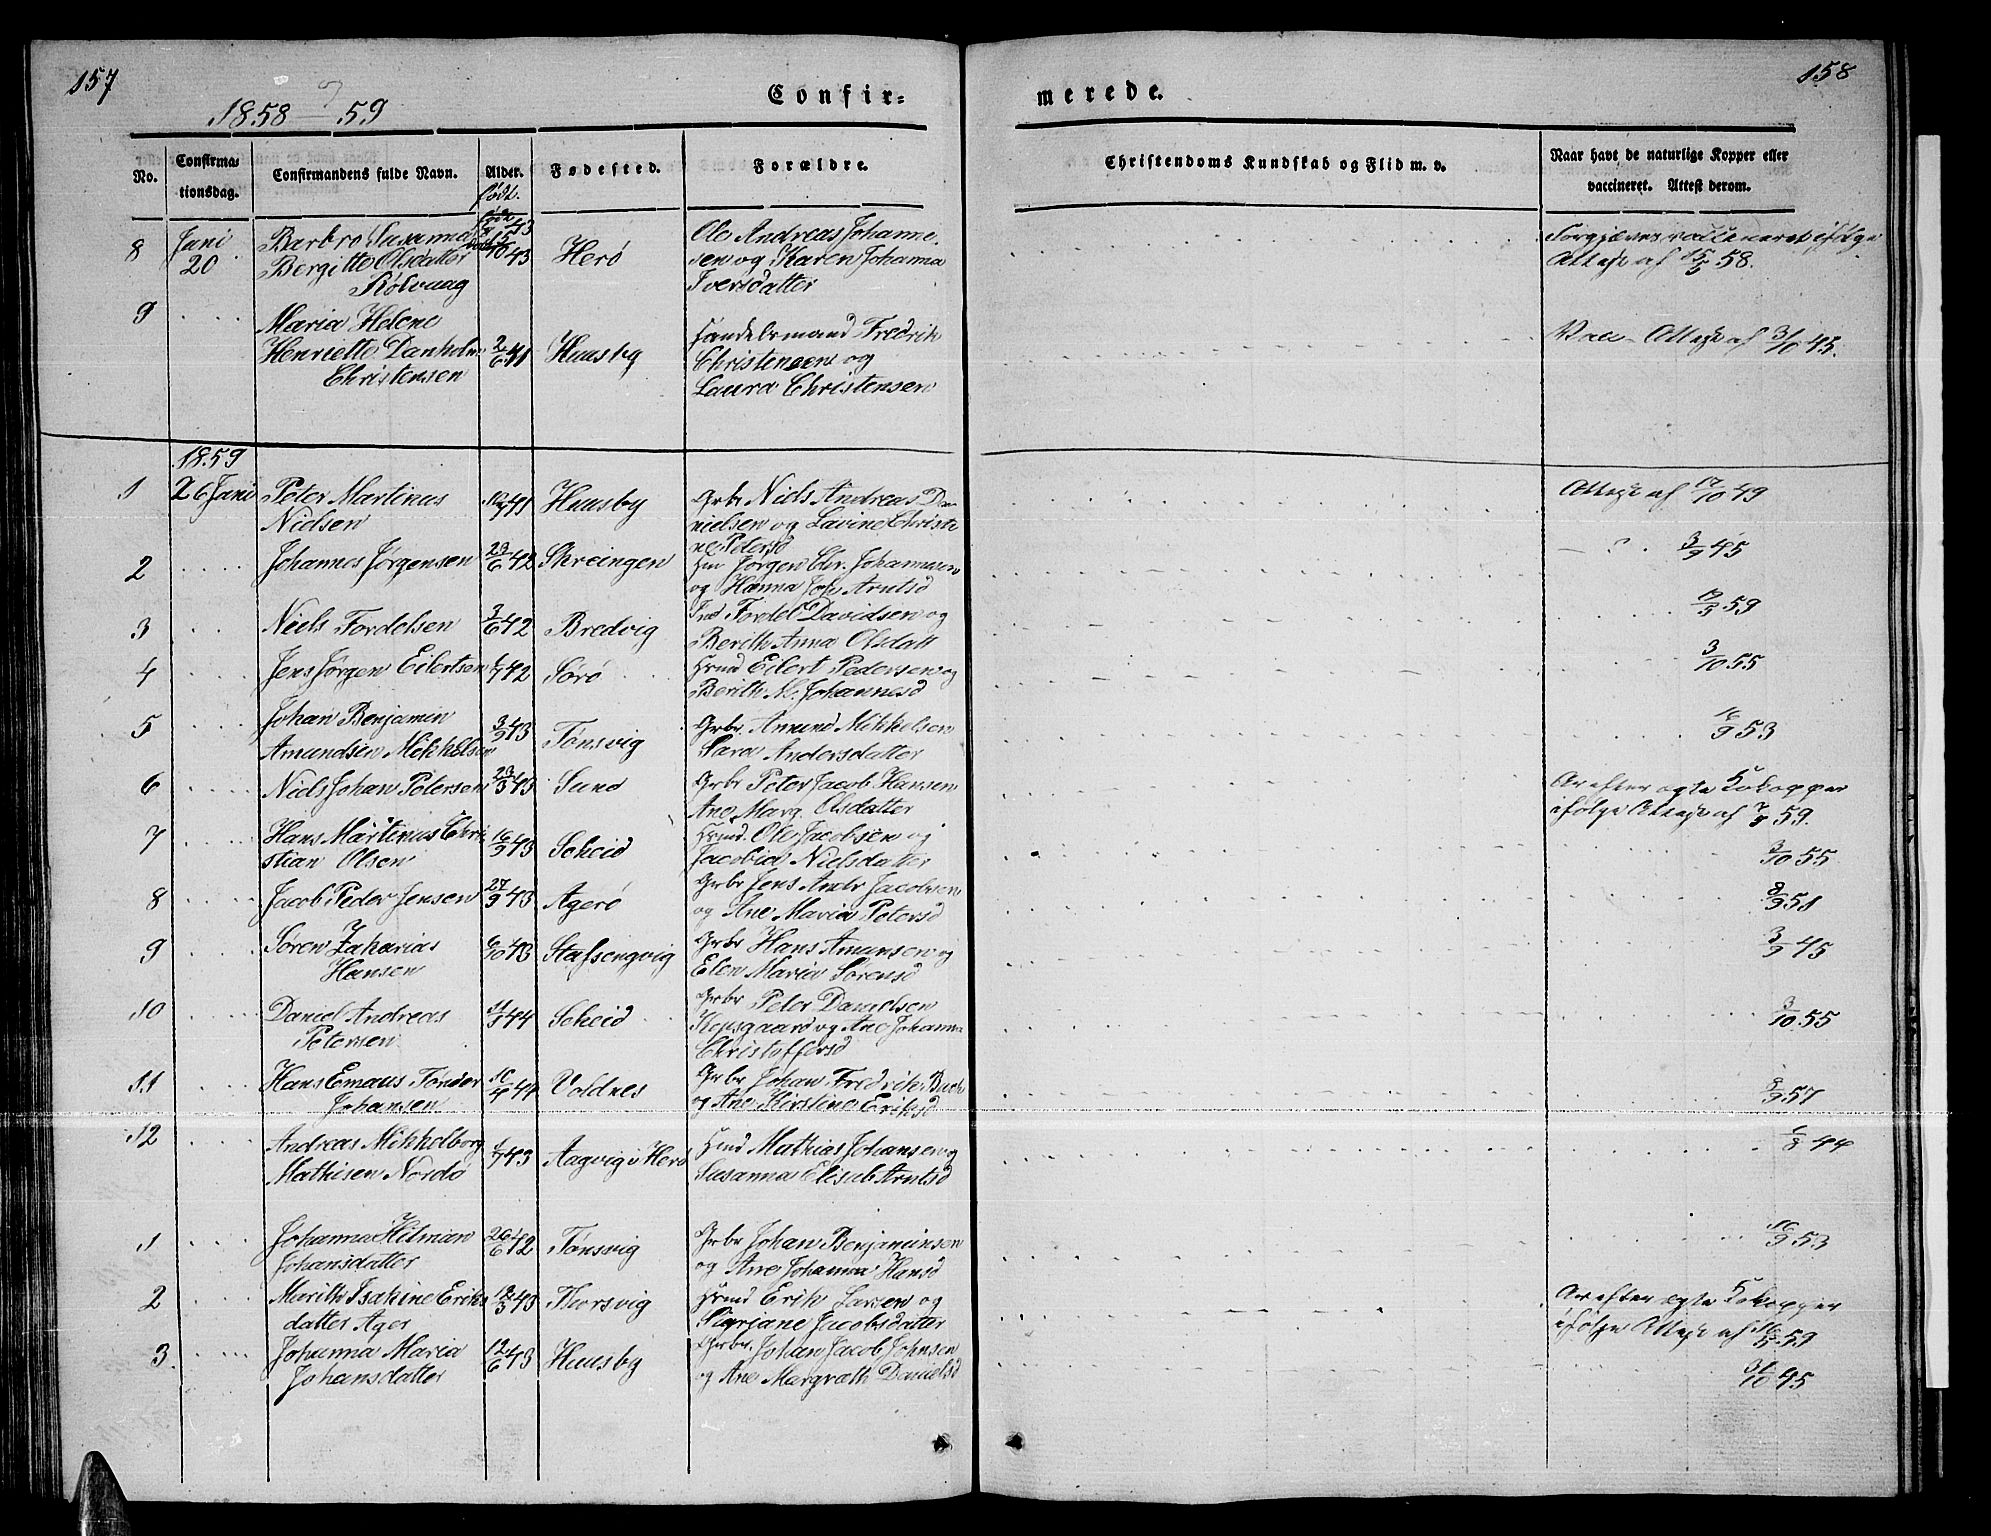 157
158
1858 - 59
Confir-
merede.
No.
Confirma-
tionsdag.
Confirmandens fulde Navn.
Alder.
født.
Fødested.
Forældre.
Christendoms Kundskab og Flid m. v.
Naar havt de naturlige Kopper eller
vaccineret. Attest derom.
8 Juni 20 Barbro Susanna
Bergitte Olsdatter
Rølvaag
Herø
Ole Andreas Johanne-
sen og Karen Johanna
Iversdatter
Forgjæves vaccineret ifølge
Attest af 15/5 58.
9 Maria Helene
Henriette Danholm
Christensen
2/6 41 Huusby
Handelsmand Fredrik
Christensen og
Laura Christensen
Vacc. Attest af 3/10 43.
1859
1 26 Juni Peter Martinus
Nielsen
41 Huusby
Grbr Niels Andreas Da-
nielsen og Lavine Christi
ne Petersd
Attest af 17/10 49
2 Johannes Jørgensen 23/6 42 Skreingen
Jørgen Chr. Johannesen
og Hanna Joh. Arntsd
3/9 45
3 Niels Fordelsen 3/6 42 Bredvig
Ind Fordel Davidsen og
Berith Anna Olsdatt
59
4 Jens Jørgen Eilertsen 42 Sørø
Hmd Eilert Pedersen og
Berith M. Johannesd
3/10 55
5 Johan Benjamin
Amundsen Mikkelsen
3/9 43 Tønsvig
Grbr. Amund Mikkelsen
Sara Andersdatter
16/9 53
6 Niels Johan Petersen 23/3 43 Sund
Grbr Peter Jacob Hansen
Ane Marg. Olsdatter
Ar efter ægte Kokopper
ifølge Attest af 59.
7 Hans Martinus Chri
stian Olsen
16/9 43 Scheid
Hmd. Ole Jacobsen og
Jacobia Nielsdatter
3/10 55
8 Jacob Peder Jensen 27/9 43 Agerø
Grbr Jens Andr Jacobsen
og Ane Maria Petersd
8/9 51
9 Søren Zakarias
Hansen
6/10 43 Stafsengvig
Grbr Hans Amunsen og
Elen Maria Sørensd
3/9 45
10 Daniel Andreas
Petersen
44 Scheid
Grbr Peter Danielsen
Kopsgaard og Ane Johanna
Christoffersd
3/10 55
11 Hans Emaus Tønder
Johansen
44 Voldnes
Grbr Johan Fredrik Buch
og Ane Kirstine Eriksd
8/9 57
12 Andreas Mikkelborg
Mathisen Nordø
43 Aagvig i Herø
Hmd Mathias Johansen og
Susanna Elisab Arntsd
44
1 Johanna Hilman
Johansdatter
26/6 42 Tønsvig
Grbr Johan Benjaminsen
og Ane Johanna Hansd
16/9 53
2 Marith Isakine Eriks
datter Ager
43 Thorsvig
Hmd Erik Larsen og
Sigrjane Jacobsdatter
Ar efter ægte Kokopper
ifølge Attest af 16/5 59
3 Johanna Maria
Johansdatter
12/6 43 Huusby
Grbr. Johan Jacob Johnsen
og Ane Margræth Danielsd
31/10 45